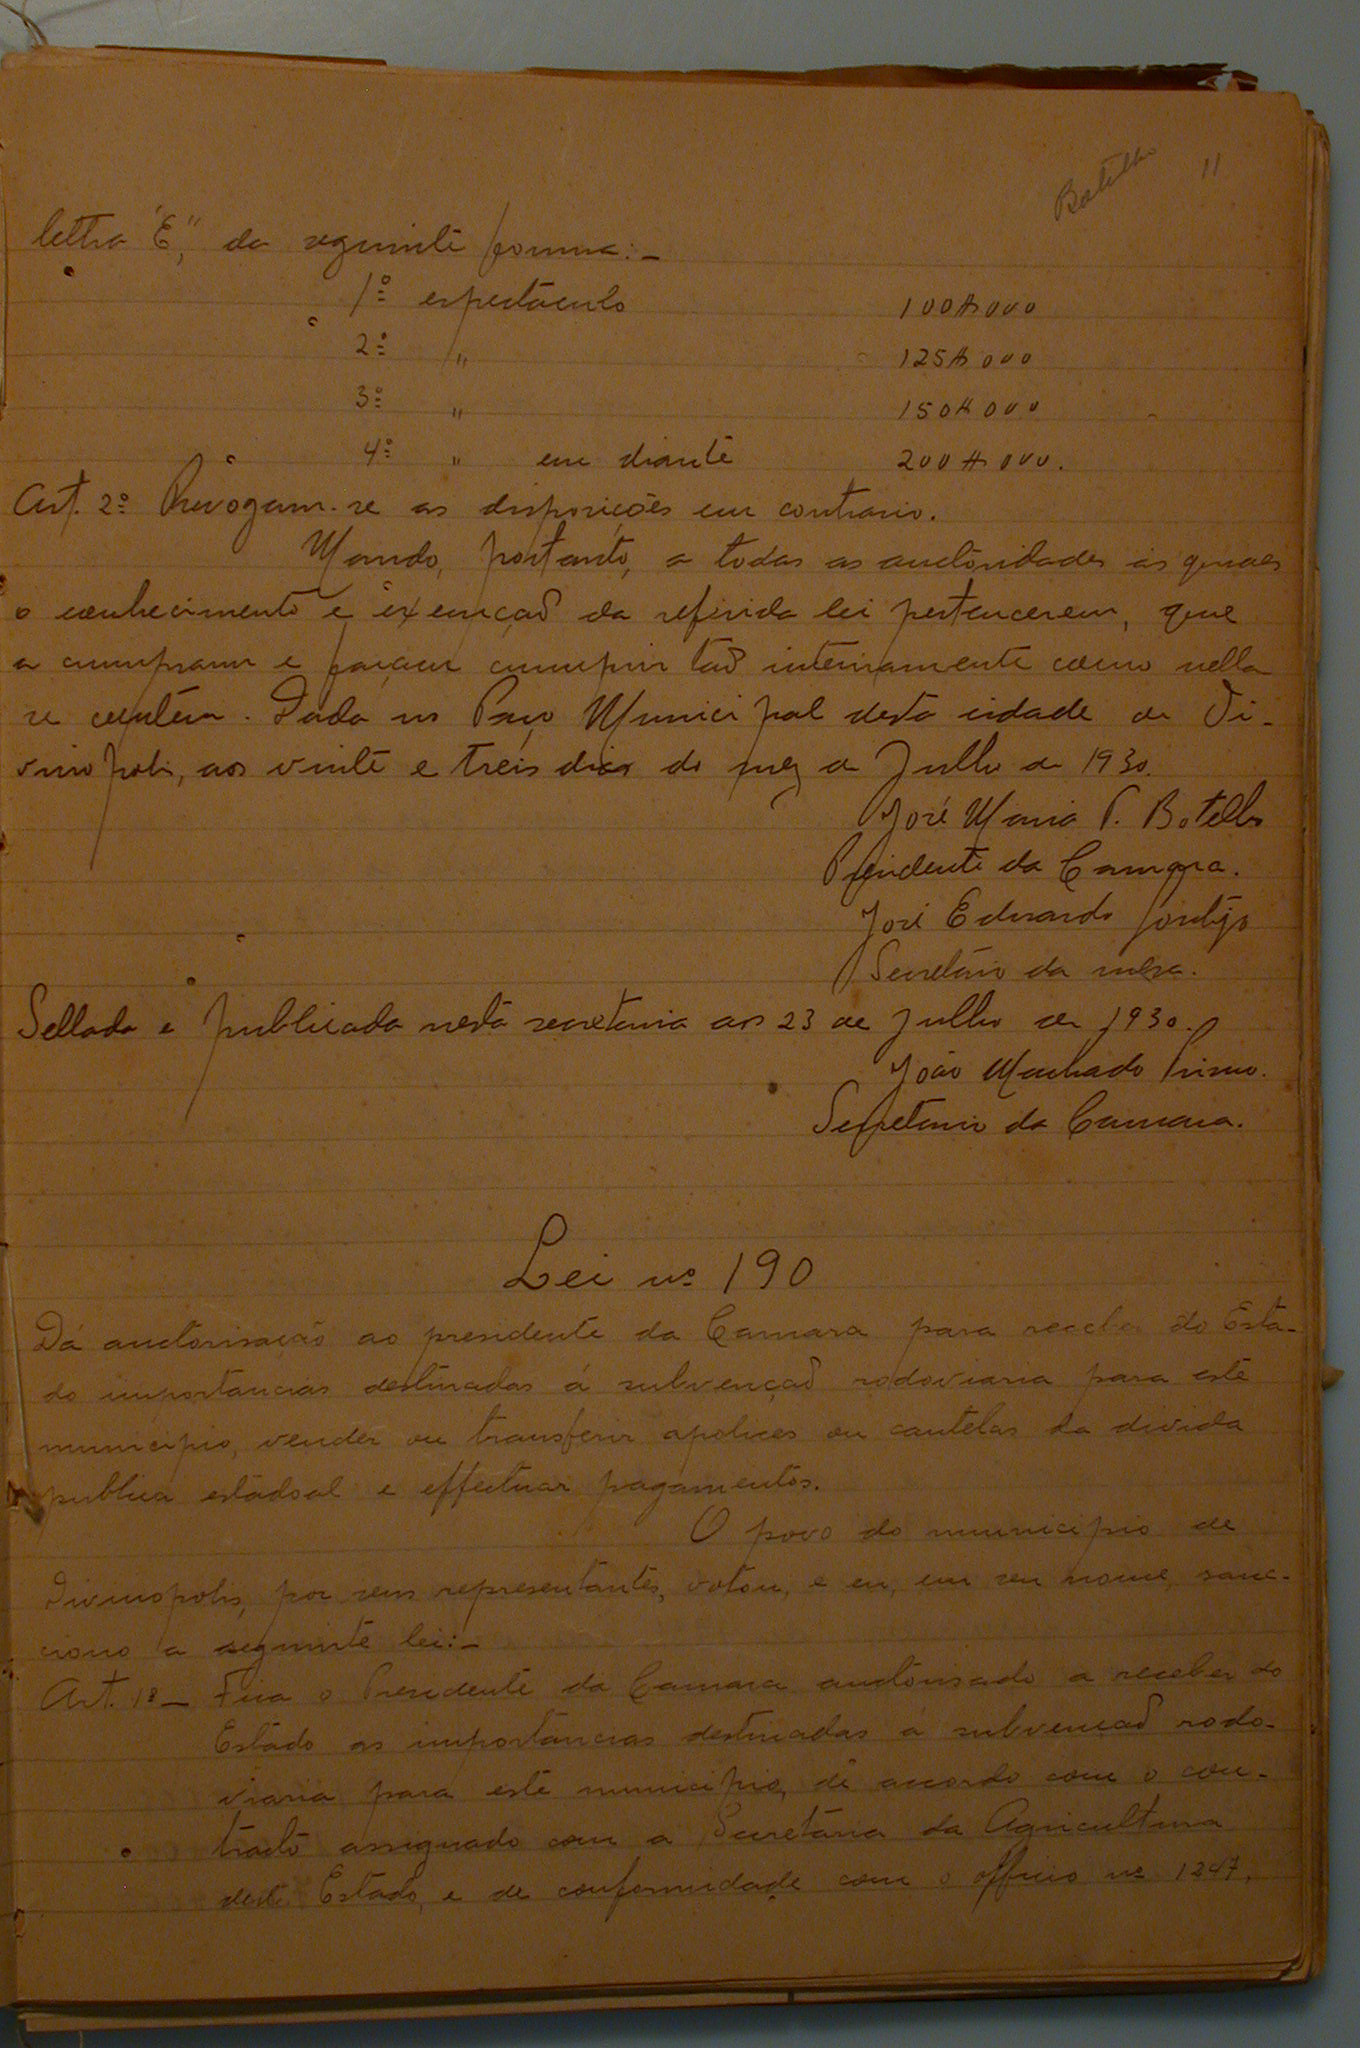 Botelho 11
letra "E", da seguinte forma:-
1º espectaculo 100$000
2º " 125$000
3º " 150$000
4º " em diante 200$000.
Art. 2º Revogam-se as disposições em contrario.
Mando, portanto, a todas as auctoridades ás quaes
o conhecimento e execuçaõ da referida lei pertencerem, que
a cumpram e façam cumprir taõ inteiramente como nella
se contém. Dada no Paço Municipal desta cidade de Di-
vinopolis, aos vinte e treis dias do mez de Julho de 1930.
José Maria P. Botelho
Presidente da Camara.
José Eduardo
Secretário da mesa.
Sellada e publicada nesta secretaria aos 23 de Julho de 1930.
João Machado Primo.
Secretario da Camara.
Lei nº 190
Dá auctorisação ao presidente da Camara para receber do Esta-
do importancias destinadas á subvençaõ rodoviaria para este
municipio, vender ou transferir apolices ou cautelas da divida
publica estadoal e effectuar pagamentos.
O povo do municipio de
Divinopolis, por seus representantes, votou, e eu, em seu nome, sanc-
ciono a seguinte lei:-
Art. 1º- Fica o Presidente da Camara auctorisado a receber do
Estado as importancias destinadas á subvençaõ rodo-
viaria para este municipio, de accordo com o con-
tracto assignado com a Secretaria da Agricultura
deste Estado, e de conformidade com o officio nº 1247,